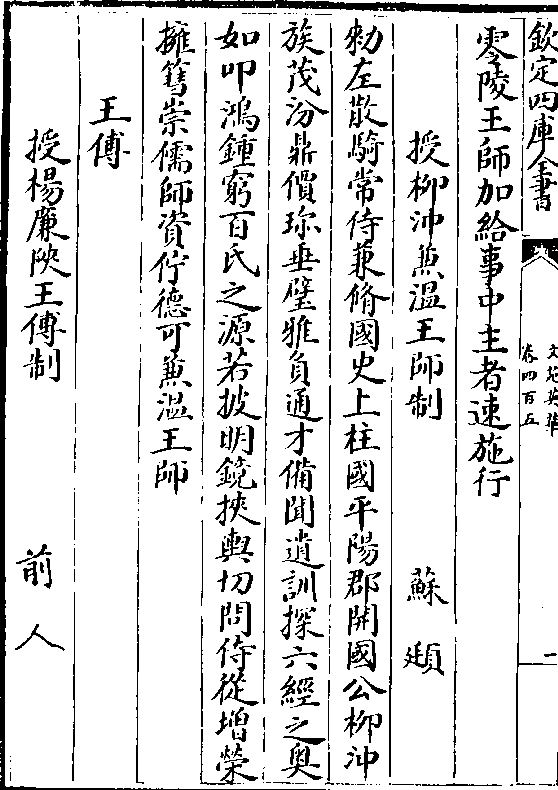 欽定四庫全書
文苑英華
卷四百五
一
零陵王師加給事中主者速施行
授柳沖兼溫王師制
蘇頲
勅左散騎常侍兼脩國史上柱國平陽郡開國公柳沖
族茂汾鼎價珍垂璧雅負通才備聞遺訓探六經之奥
如叩鴻鍾窮百氏之源若披明鏡挾輿切問侍從增榮
擁篲崇儒師資佇德可兼溫王師
王傅
授楊廉陜王傅制
前人